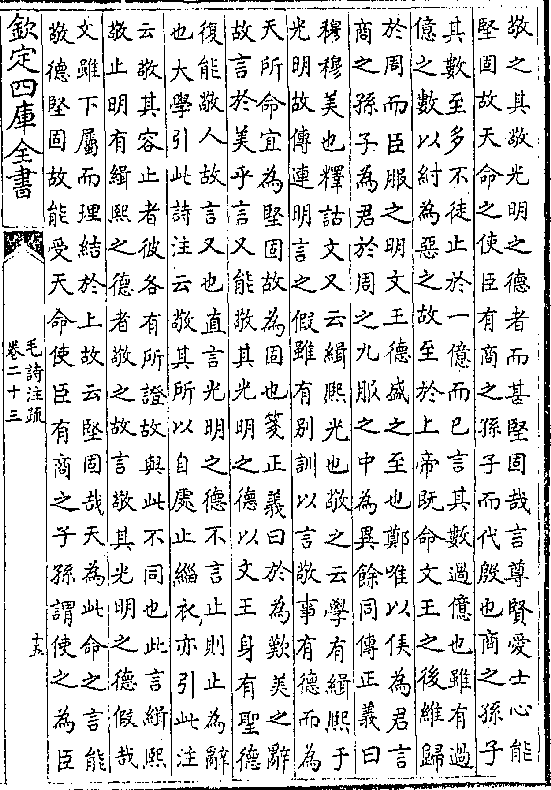 敬之其敬光明之德者而甚堅固哉言尊賢愛士心能
堅固故天命之使臣有商之孫子而代殷也商之孫子
其數至多不徒止於一億而已言其數過億也雖有過
億之數以紂為惡之故至於上帝既命文王之後維歸
於周而臣服之明文王德盛之至也鄭唯以侯為君言
商之孫子為君於周之九服之中為異餘同傳正義曰
穆穆美也釋詁文又云緝熙光也敬之云學有緝熙于
光明故傳連明言之假雖有别訓以言敬事有德而為
天所命宜為堅固故為固也箋正義曰於為歎美之辭
故言於美乎言又能敬其光明之德以文王身有聖德
復能敬人故言又也直言光明之德不言止則止為辭
也大學引此詩注云敬其所以自處止緇衣亦引此注
云敬其容止者彼各有所證故與此不同也此言緝熙
敬止明有緝熙之德者敬之故言敬其光明之德假哉
文雖下屬而理結於上故云堅固哉天為此命之言能
敬德堅固故能受天命使臣有商之子孫謂使之為臣
欽定四庫全書
毛詩注疏
卷二十三
十五